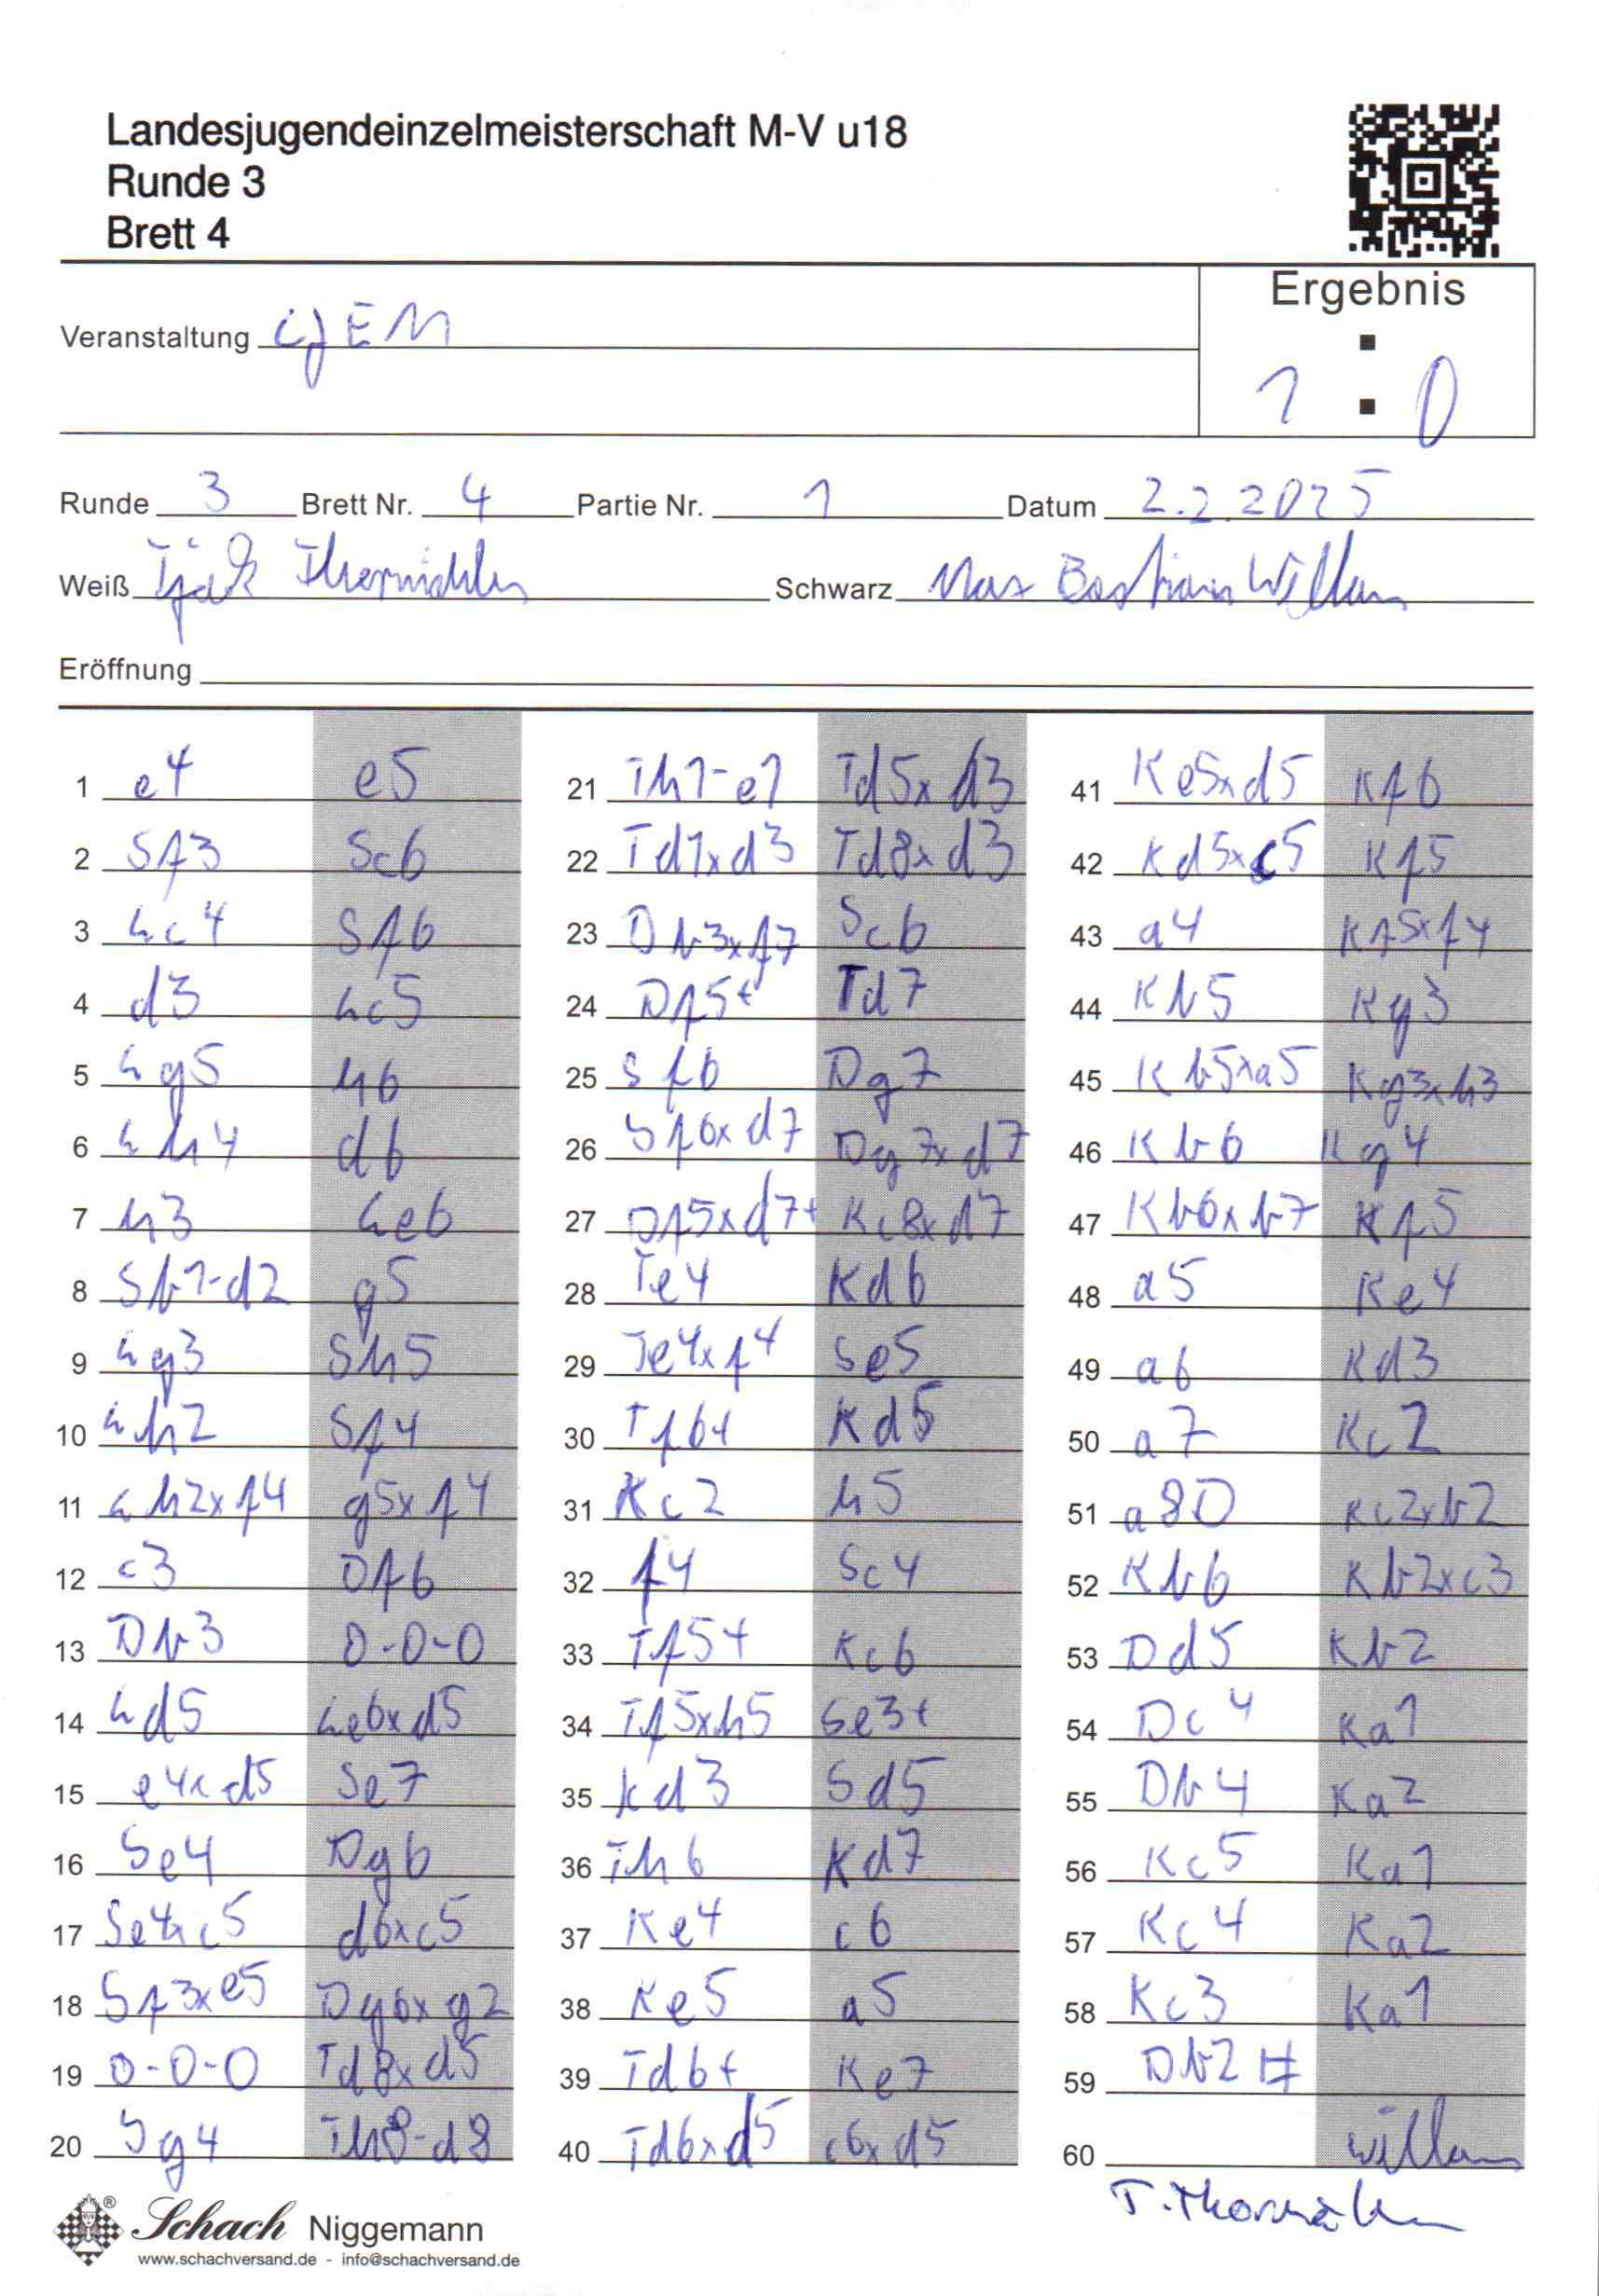 Landesjugendeinzelmeisterschaft M-V u18
Runde 3
Brett 4
Ergebnis
Veranstaltung LJEM
1 : 0
Runde 3 Brett Nr. 4 Partie Nr. 1 Datum 2.2.2025
Weiß Schwarz Max Bastian Willam
Eröffnung
1 e4 e5
2 Sf3 Sc6
3 Lc4 Sf6
4 d3 Lc5
5 Lg5 h6
6 Lh4 d6
7 h3 Le6
8 Sb1-d2 g5
9 Lg3 Sh5
10 Lh2 Sf4
11 Lh2xf4 g5xf4
12 c3 Df6
13 Db3 0-0-0
14 Ld5 Le6xd5
15 e4xd5 Se7
16 Se4 Dg6
17 Se4xc5 d6xc5
18 Sf3xe5 Dg6xg2
19 0-0-0 Td8xd5
20 Sg4 Th8-d8
21 Th1-e1 Td5xd3
22 Td1xd3 Td8xd3
23 Db3xf7 Sc6
24 Df5+ Td7
25 Sf6 Dg7
26 Sf6xd7 Dg7xd7
27 Df5xd7+ Kc8xd7
28 Te4 Kd6
29 Te4xf4 Se5
30 Tf6+ Kd5
31 Kc2 h5
32 f4 Sc4
33 Tf5+ Kc6
34 Tf5xh5 Se3+
35 Kd3 Sd5
36 Th6 Kd7
37 Ke4 c6
38 Ke5 a5
39 Td6+ Ke7
40 Td6xd5 c6xd5
41 Ke5xd5 Kf6
42 Kd5xc5 Kf5
43 a4 Kf5xf4
44 Kb5 Kg3
45 Kb5xa5 Kg3xh3
46 Kb6 Kg4
47 Kb6xb7 Kf5
48 a5 Ke4
49 a6 Kd3
50 a7 Kc2
51 a8D Kc2xb2
52 Kb6 Kb2xc3
53 Dd5 Kb2
54 Dc4 Ka1
55 Db4 Ka2
56 Kc5 Ka1
57 Kc4 Ka2
58 Kc3 Ka1
59 Db2#
60 Willam
Schach Niggemann
www.schachversand.de - info@schachversand.de